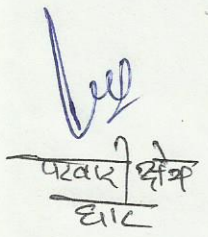 पटवारी क्षेत्र
घाट